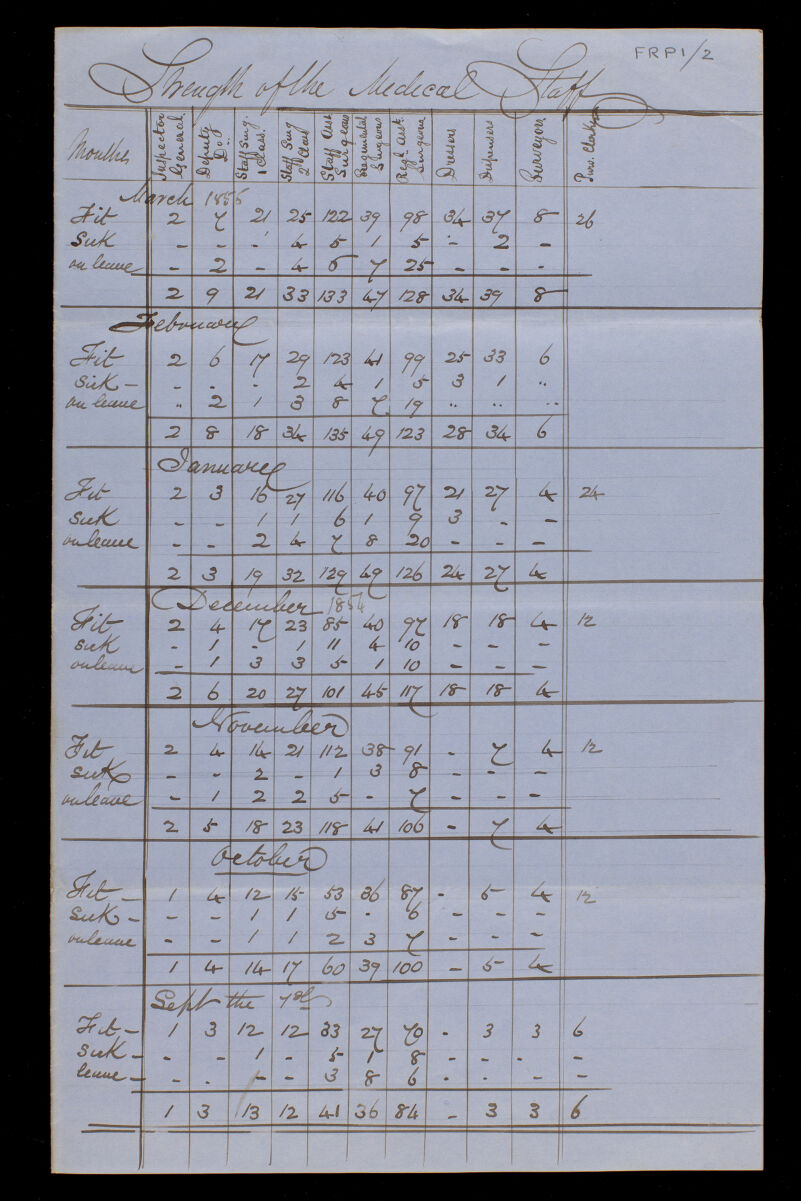 FRP1/2
Strength of the Medical Staff
Months Inspector General Deputy Do. Staff Surg. 1 Class. Staff Surg 2nd Class Staff Asst Surgeons Regimental Surgeons Regtl Asst. Surgeons Dressers Dispensers Surveyors Purv. Clerks
March 1856
Fit 2 7 21 25 122 39 98 34 37 8 26
Sick - - - 4 5 1 5 - 2 -
on leave - 2 - 4 6 7 25 - - -
2 9 21 33 133 47 128 34 39 8
February
Fit 2 6 17 29 123 41 99 25 33 6
Sick - - - - 2 4 1 5 3 1 "
on leave " 2 1 3 8 7 19 " " "
2 8 18 34 135 49 123 28 34 6
January
Fit 2 3 16 27 116 40 97 21 27 4 24
Sick - - 1 1 6 1 9 3 - -
on leave - - 2 4 7 8 20 - - -
2 3 19 32 129 49 126 24 27 4
December 1854
Fit 2 4 17 23 85 40 97 18 18 4 12
Sick - 1 - 1 11 4 10 - - -
on leave - 1 3 3 5 1 10 - - -
2 6 20 27 101 45 117 18 18 4
November
Fit 2 4 14 21 112 38 91 - 7 4 12
Sick - - 2 - 1 3 8 - - -
on leave - 1 2 2 5 - 7 - - -
2 5 18 23 118 41 106 - 7 4
October
Fit - 1 4 12 15 53 36 87 - 5 4 12
Sick - - - 1 1 5 - 6 - - -
on leave - - 1 1 2 3 7 - - -
1 4 14 17 60 39 100 - 5 4
Sept the 1st
Fit - 1 3 12 12 33 27 70 - 3 3 6
Sick - - - 1 - 5 1 8 - - - -
leave - - - - - 3 8 6 - - - -
1 3 13 12 41 36 84 - 3 3 6